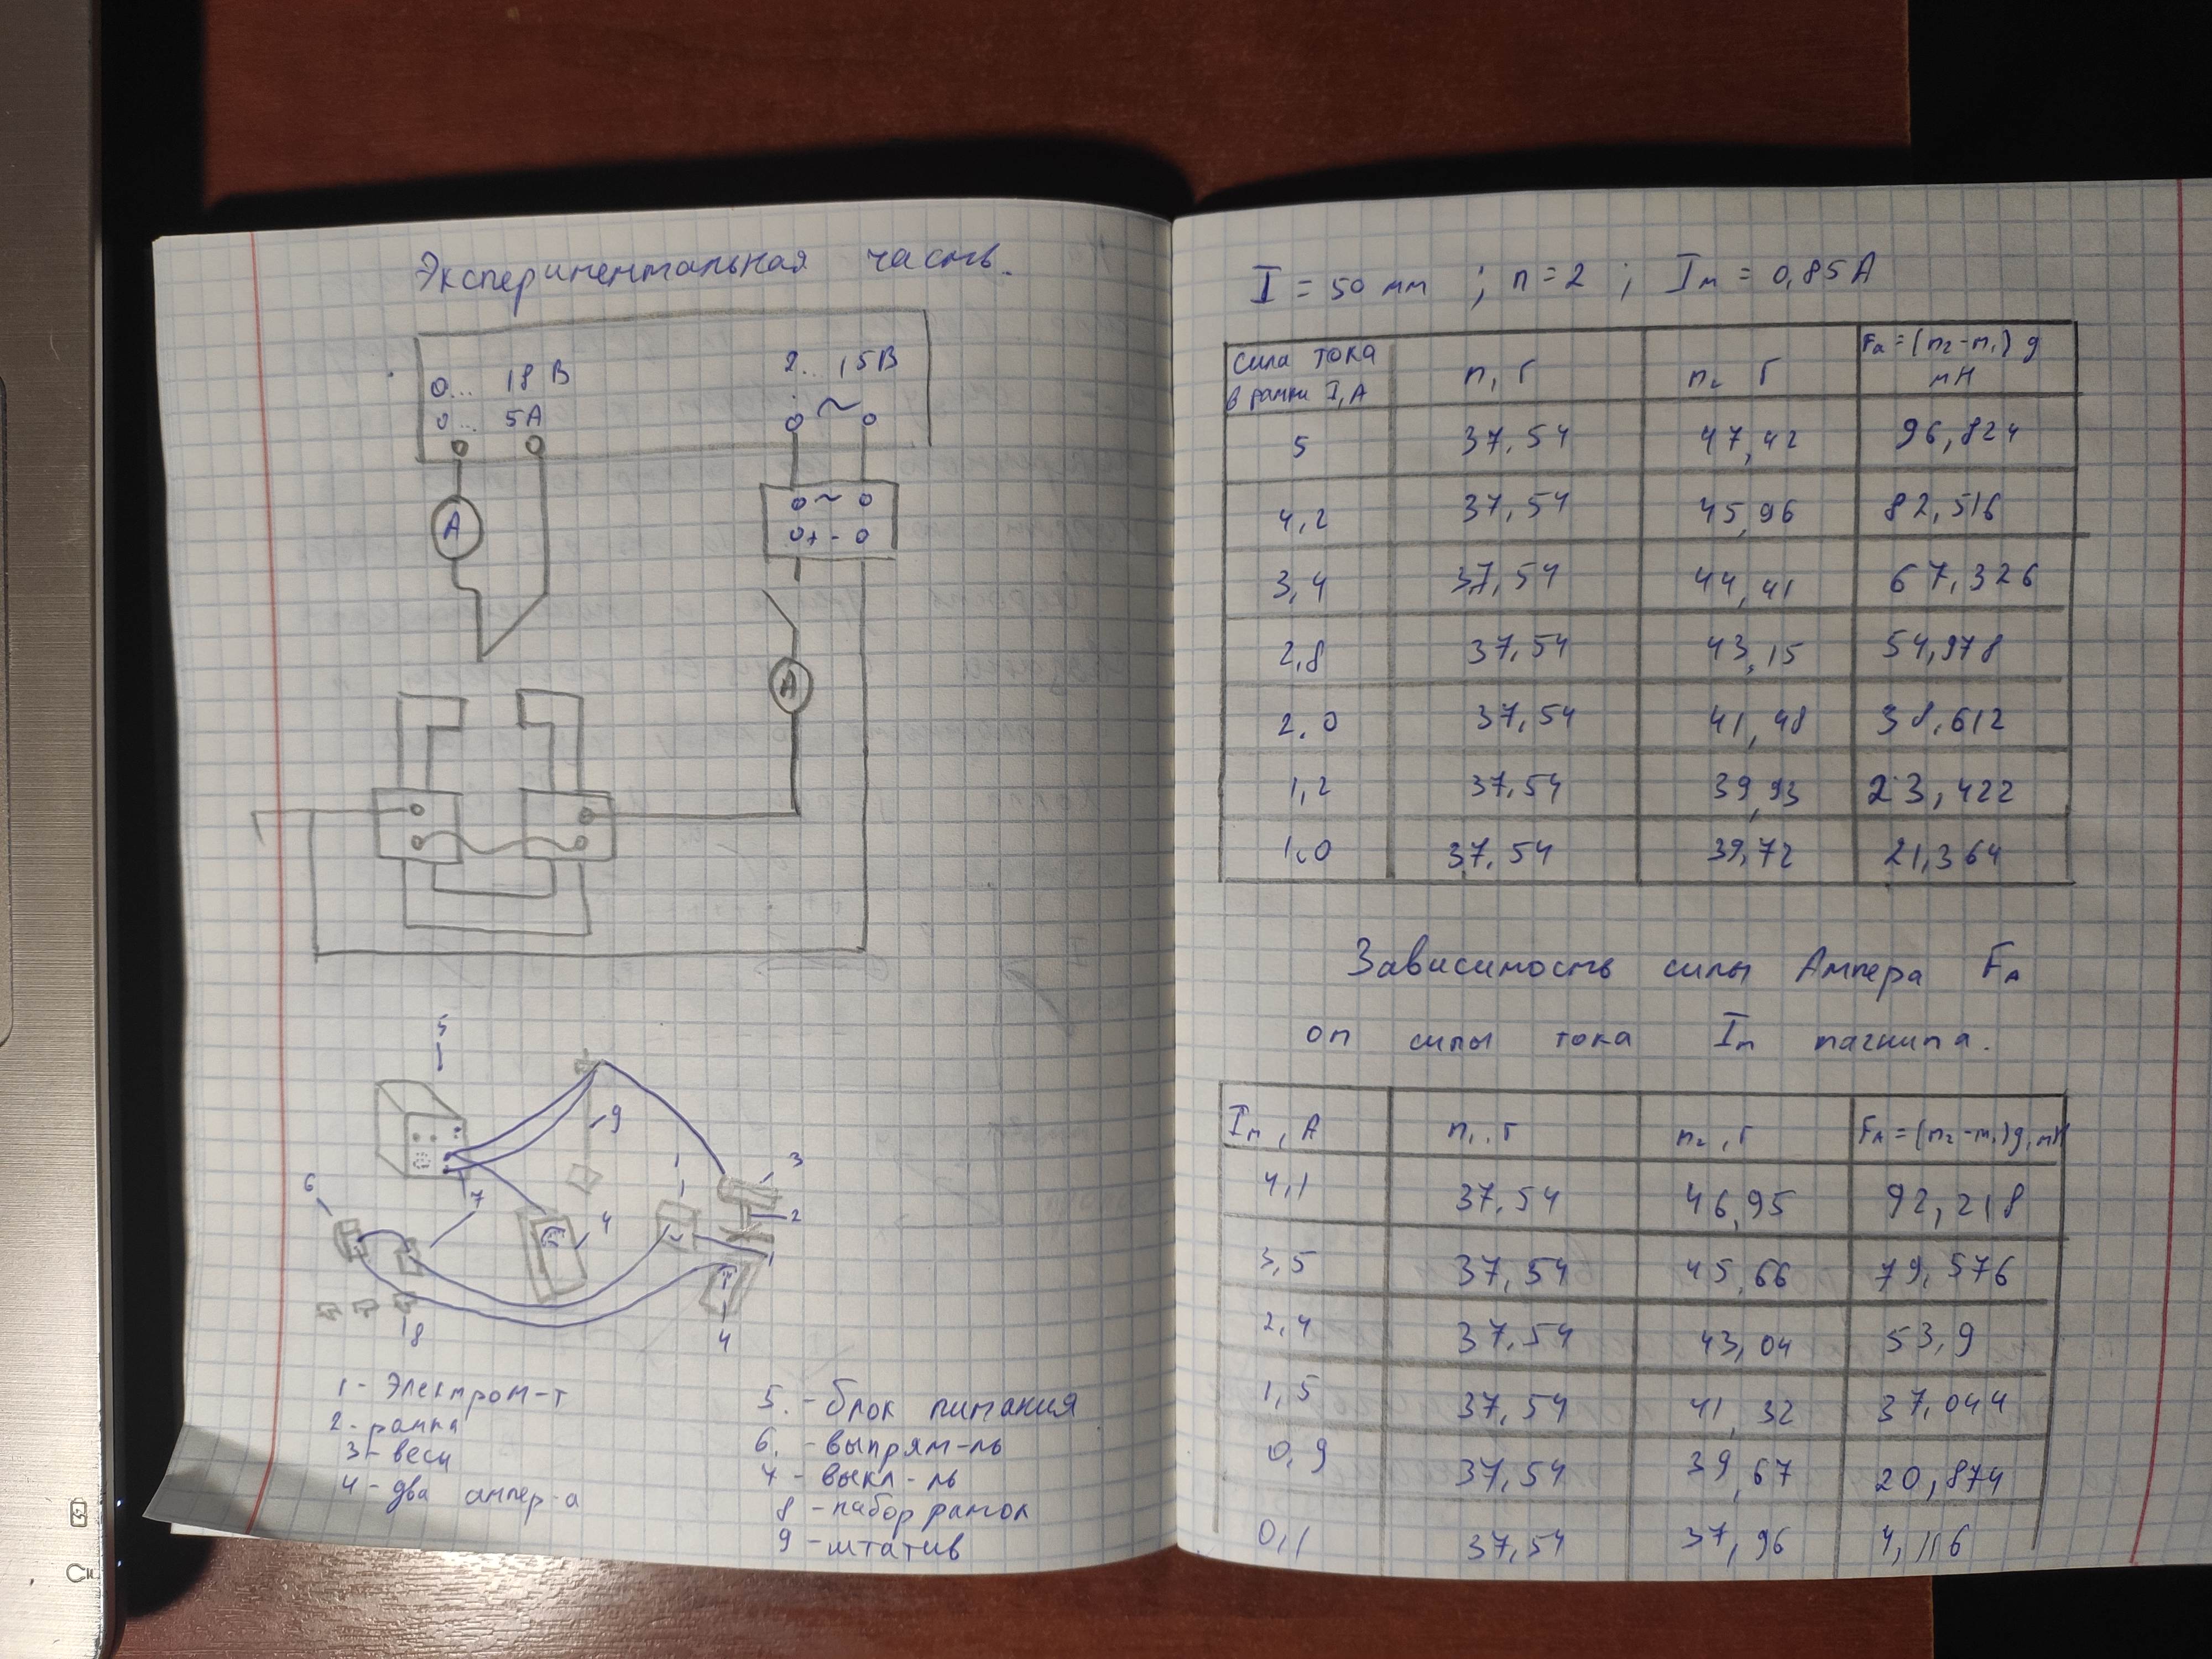 Экспериментальная часть.
0... 18 В
0... 5А
2... 15В
~
А
0 ~ 0
0 + - 0
А
5
9
3
1
6
7
4
2
8
4
1 - Электром-т
2 - рамка
3 - весы
4 - два ампер-а
5. - блок питания
6. - выпрям-ль
7 - выкл-ль
8 - набор рамок
9 - штатив
I = 50 мм ; n = 2 ; Iм = 0,85 А
Сила тока в рамки I, А | m1 г | m2 г | Fа = (m2 - m1) g мН
5 | 37,54 | 47,42 | 96,824
4,2 | 37,54 | 45,96 | 82,516
3,4 | 37,54 | 44,41 | 67,326
2,8 | 37,54 | 43,15 | 54,978
2,0 | 37,54 | 41,48 | 38,612
1,2 | 37,54 | 39,93 | 23,422
1,0 | 37,54 | 39,72 | 21,364
Зависимость силы Ампера FА
от силы тока Iм магнита.
Iм, А | m1, г | m2, г | FА = (m2 - m1) g, мН
4,1 | 37,54 | 46,95 | 92,218
3,5 | 37,54 | 45,66 | 79,576
2,4 | 37,54 | 43,04 | 53,9
1,5 | 37,54 | 41,32 | 37,044
0,9 | 37,54 | 39,67 | 20,874
0,1 | 37,54 | 37,96 | 4,116